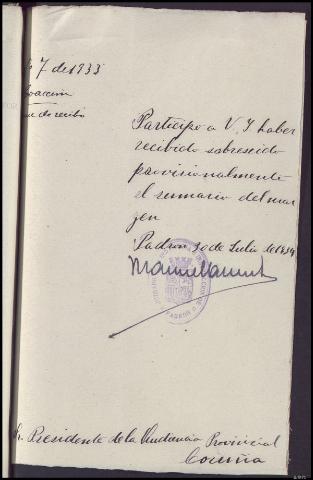 7 de 1933
Coacción
de recibo
Participo a V. I. haber
recibido sobreseido
provisionalmente
el sumario del mar
jen
Padron 30 de Julio de 1934
PADRON
Sr. Presidente de la Audiencia Provincial
Coruña